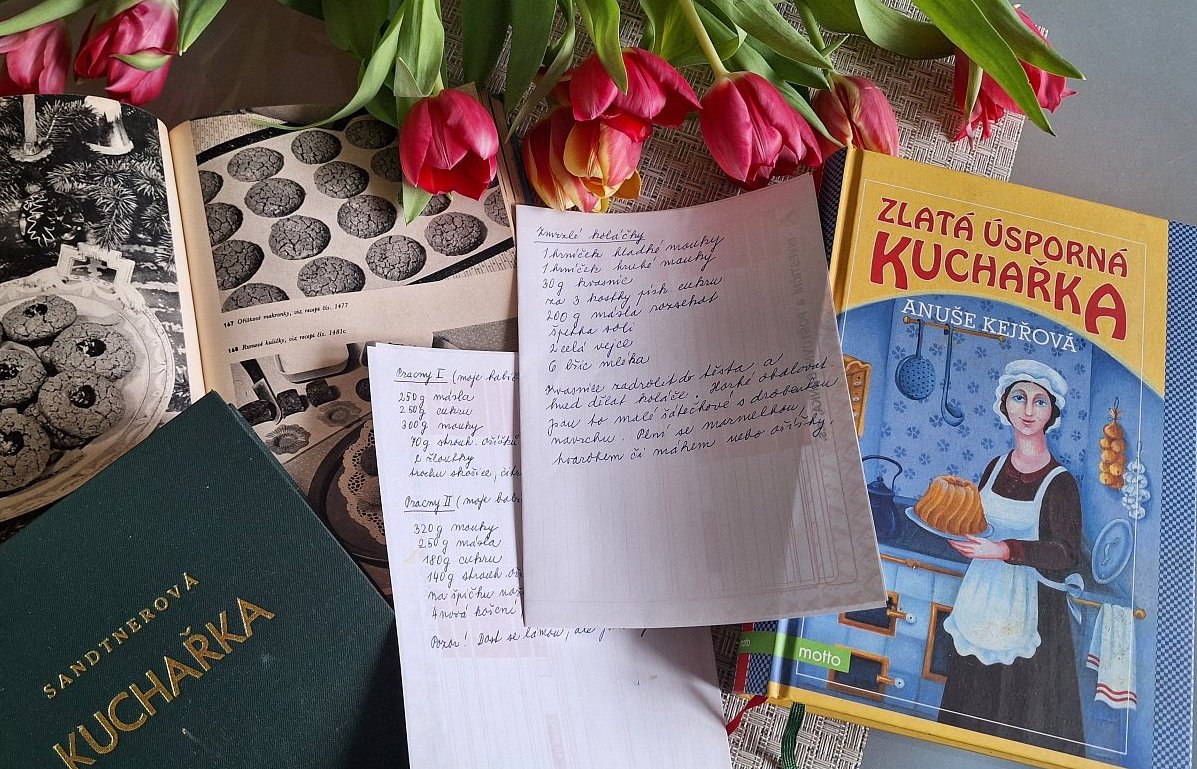 167 Oříškové makronky, viz recept čís. 1477
168 Rumové kuličky, viz recept čís. 1481c
SANDTNEROVÁ
KUCHAŘKA
Pracny I (moje babič
250 g másla
250 g cukru
300 g mouky
70 g strouh. oříšků
2 žloutky
trochu skořice, cit
Pracny II (moje babi
320 g mouky
250 g másla
180 g cukru
140 g strouh. oř
na špičku nož
4 nová koření
Pozor! Dost se lámou, ale
Zmrzlé koláčky
1 hrníček hladké mouky
1 hrníček hrubé mouky
30 g kvasnic
za 3 kostky písk cukru
200 g másla rozsekat
špetka soli
2 celá vejce
6 lžic mléka
Kvasnice rozdrolit do těsta a
hned dělat koláče. Horké obalovat
jsou to malé šátečkové s drobenkou
navrchu. Plní se marmelkou,
tvarohem či mákem nebo oříšky.
ZLATÁ ÚSPORNÁ
KUCHAŘKA
ANUŠE KEJŘOVÁ
motto